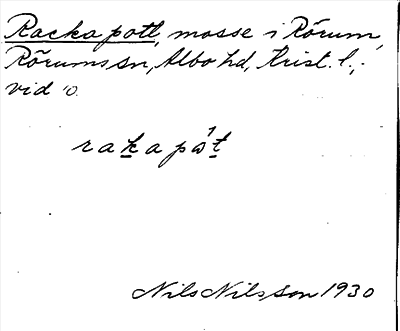 Racka pott, mosse i Rörum,
Rörums sn, Albo hd, Krist. l.,
vid o.
rakapåt
Nils Nilsson 1930